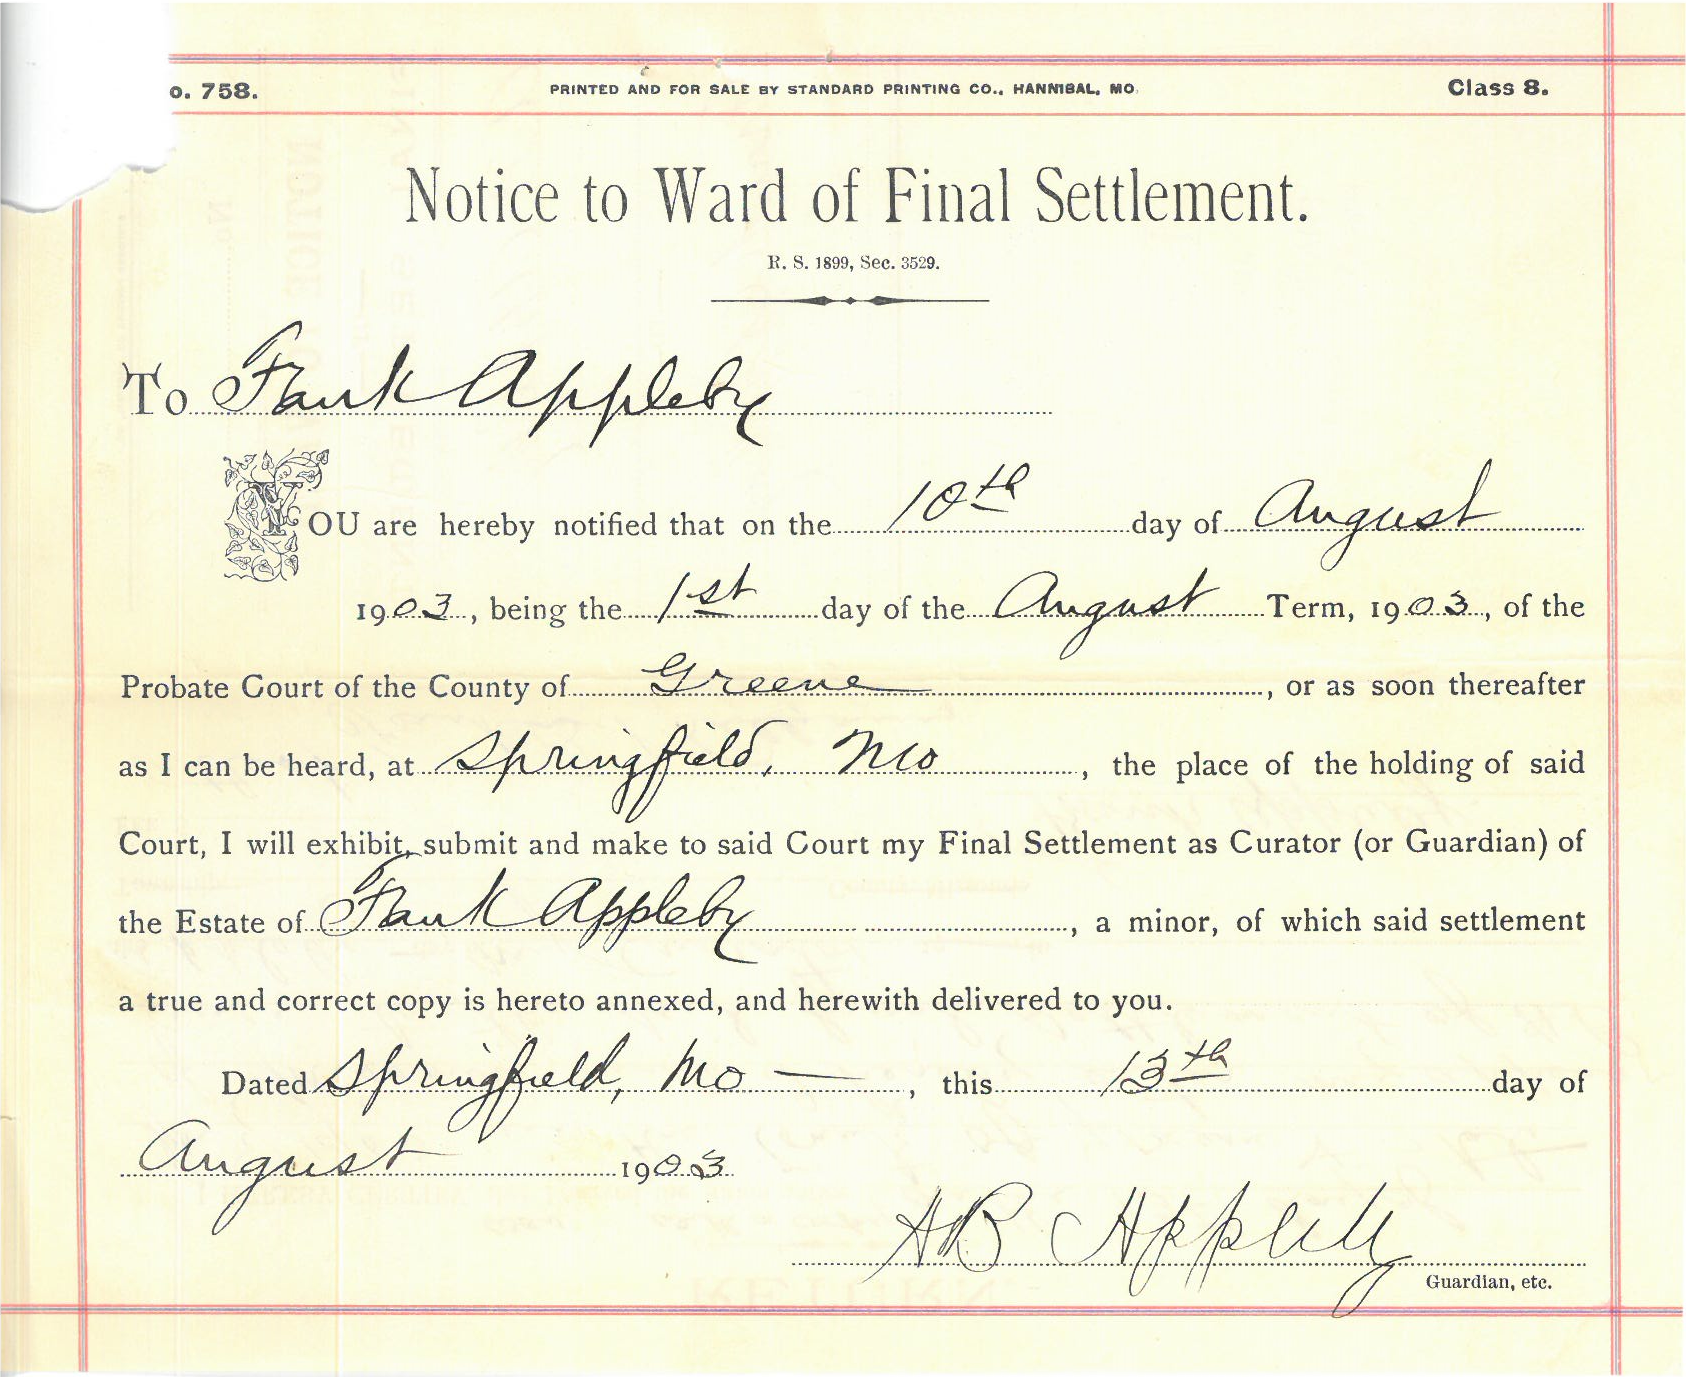 o. 758. PRINTED AND FOR SALE BY STANDARD PRINTING CO., HANNIBAL, MO. Class 8.
Notice to Ward of Final Settlement.
R. S. 1899, Sec. 3529.
To Frank Appleby
YOU are hereby notified that on the 10th day of August
1903, being the 1st day of the August Term, 1903, of the
Probate Court of the County of Greene, or as soon thereafter
as I can be heard, at Springfield, Mo, the place of the holding of said
Court, I will exhibit, submit and make to said Court my Final Settlement as Curator (or Guardian) of
the Estate of Frank Appleby, a minor, of which said settlement
a true and correct copy is hereto annexed, and herewith delivered to you.
Dated Springfield, Mo —, this 13th day of
August 1903
AB Appleby
Guardian, etc.